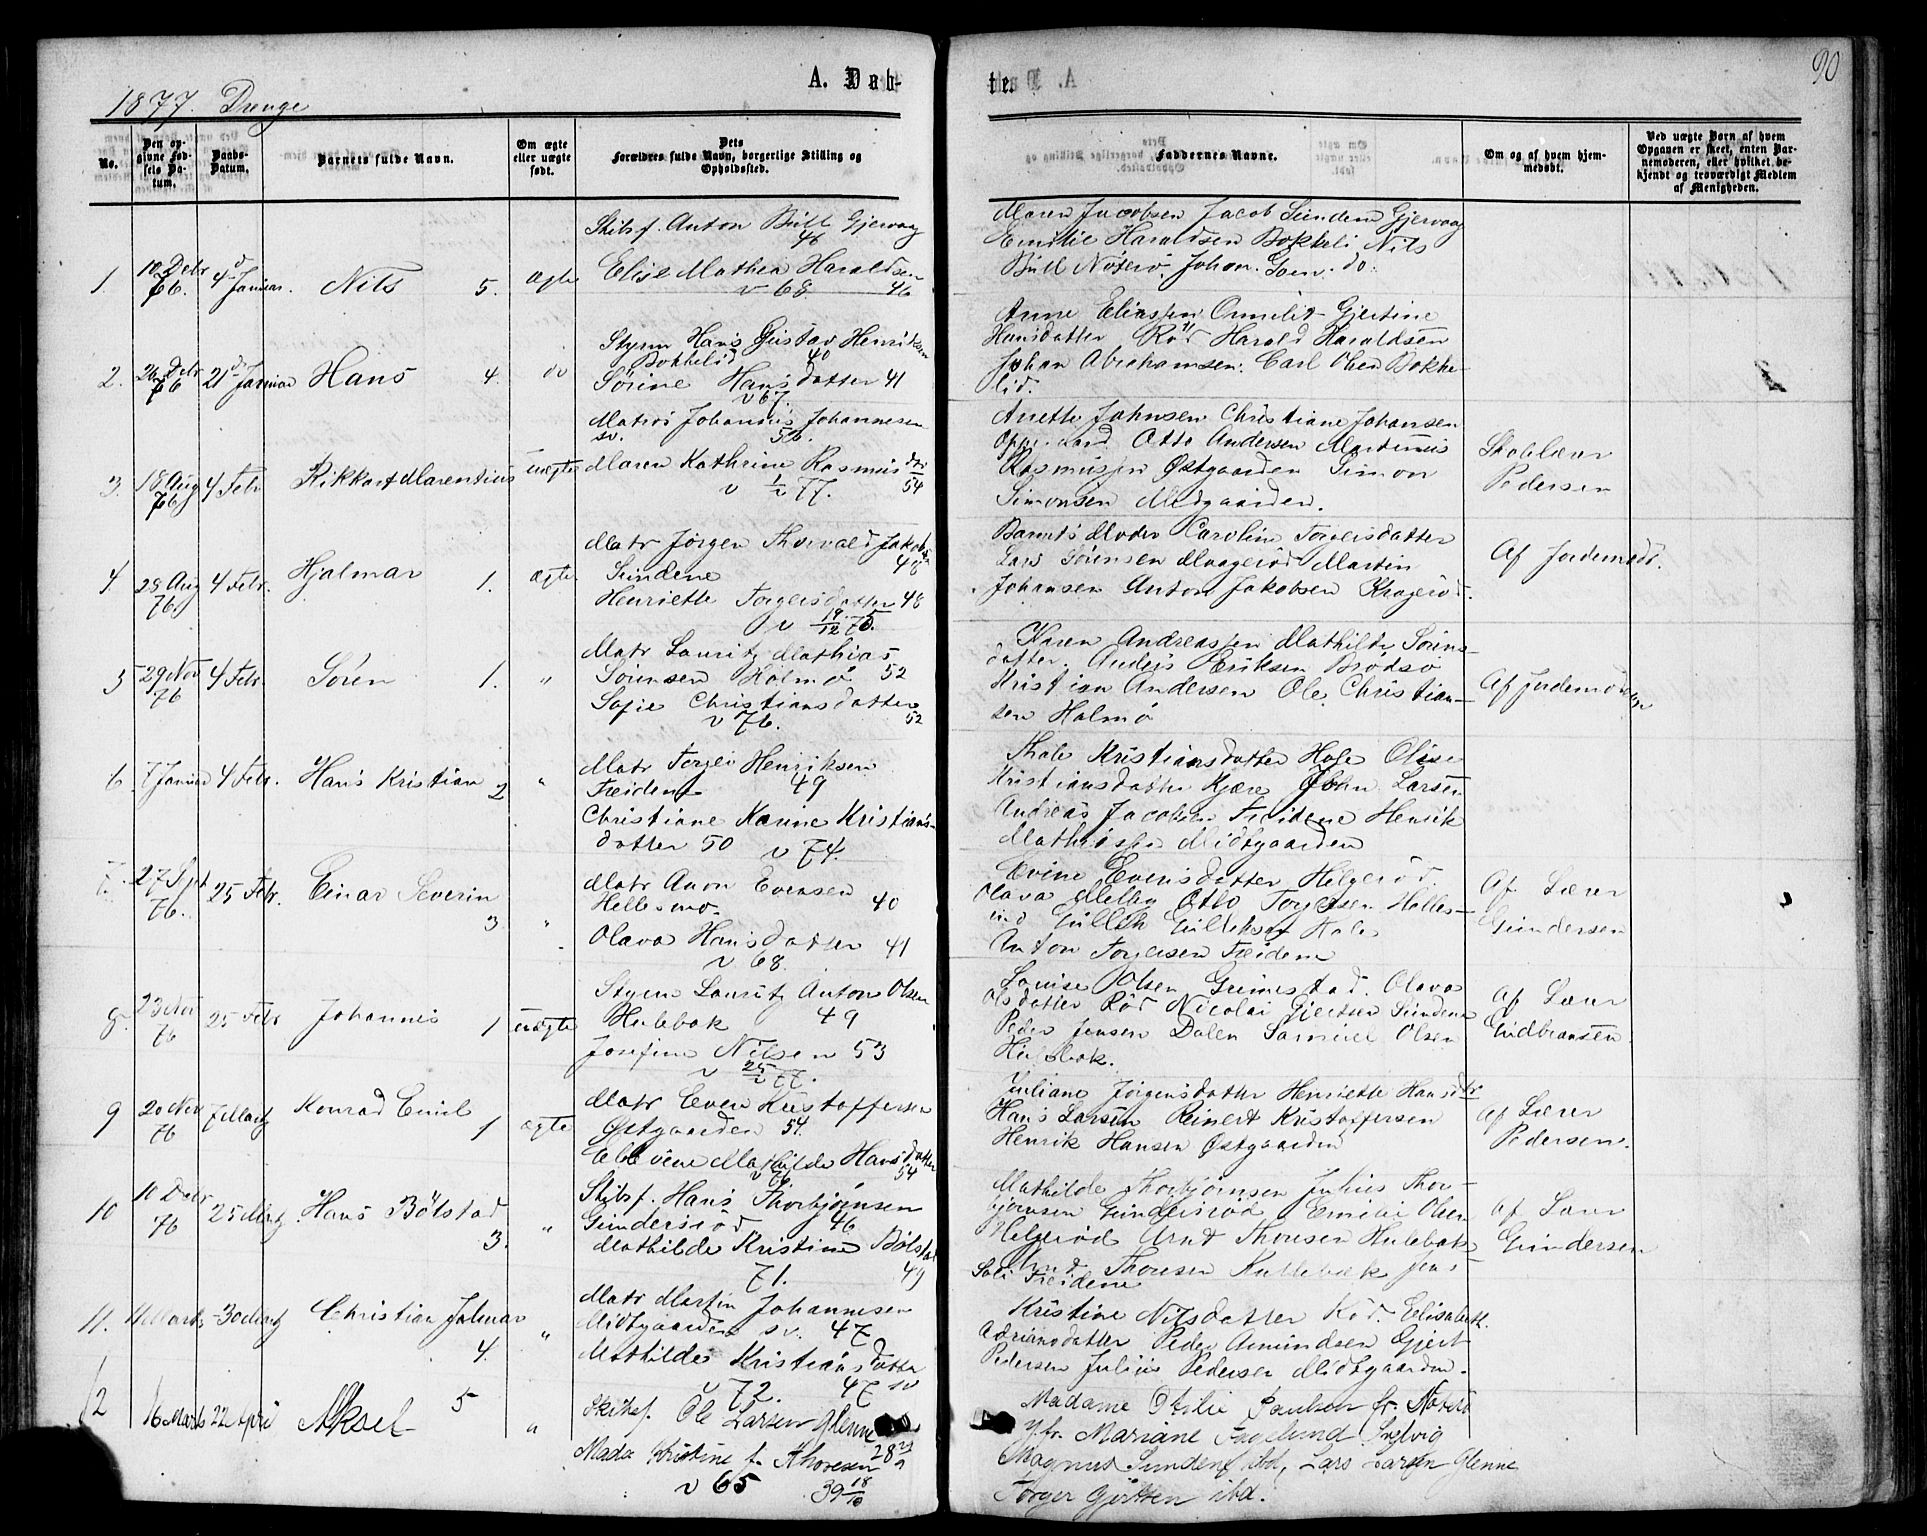 90
A. Dab-
te.
1877. Drenge
No.
Den op-
givne Fød-
sels Da-
tum.
Daabs-
Datum.
Barnets fulde Navn.
Om ægte
eller uægte
født.
Dets
Forældres fulde Navn, borgerlige Stilling og
Opholdssted.
Faddernes Navne.
Om og af hvem hjem-
medøbt.
Ved uægte Børn af hvem
Opgaven er skeet, enten Bar-
nemoderen, eller hvilket be-
kjendt og troværdigt Medlem
af Menigheden.
1 10 Debr 76. 4d Januar. Nils 5. ægte
Skibsf. Anton Bull Gjervaag
46
Elise Mathea Haraldsen
v 68. 46
Maren Jacobsen Jacob Sundene Gjervaag
Emilie Haraldsen Bokkeli Nils
Bull Nøterø. Johan do.
2. 26 Debr 76 21d Januar Hans 4. do
Styrm Hans Gustav Henriksen
Bokkelid 40
Sørine Hansdatter 41
v 67.
Anne Eliassen Gjertine
Hansdatter Rød Harald Haraldsen
Johan Abrahamsen. Carl Olsen Bokke-
lid.
3. 18 Aug 76 4 Febr Rikkart Marentius uægte
Matros Johannes Johannesen
sv. 56.
Maren Kathrine Rasmusdtr
v 77. 54
Anette Johnsen Christiane Johansen
Otto Andersen Martinius
Rasmussen Østgaarden Simon
Simonsen Midgaarden.
Skolelærer
Pedersen
4 28 Aug 76 4 Febr. Hjalmar 1. ægte
Matr Jørgen Thorvald Jakobsen
Sundene 48
Henriette Torgersdatter 48
v 19/12 75.
Barnets Moder Caroline Torgersdatter
Lars Sørensen Maagerød Martin
Johansen Anton Jakobsen Kragerød.
Af Jordemodr.
5 29 Nov 76 4 Febr. Søren 1. "
Matr Lauritz Mathias
Sørensen Holmø 52
Sofie Christiansdatter
v 76. 52
Karen Andreassen Mathilde Sørens-
datter. Anders Eriksen Brødsø
Kristian Andersen Ole Christian-
sen Holmø
Af Jordemoder
6. 7 Januar 4 Febr. Hans Kristian 2 "
Matr Torger Henriksen
Treidene 49
Christiane Karine Kristians-
datter 50 v 74.
Thale Kristiansdatter Hage Olise
Kristiansdatter Kjære John Larsen
Andreas Jacobsen Treidene Henrik
Mathiassen Midtgaarden
7. 27 Spt 76. 25 Febr. Einar Severin 3 "
Matr Aron Evensen
Hellesmo. 40
Olava Hansdatter 41
v 68.
Evine Evensdatter Helgerød.
Olava Melby Otto Torgersen Helles-
mo Gullik Gulliksen Hole
Anton Torgersen Treidene
Af Lærer
Gundersen
8. 23 Nov 76 25 Febr Johannes 1 uægte
Styrm Lauritz Anton Olsen
Hulebak 49
Josefine Nilsen 53
v 77.
Louise Olsen Grimestad. Olava
Olsdatter Rød Nicolai Gjertsen Sundene
Peder Jensen Dalen Samuel Olsen
Hulebak.
af Lærer
Gudbransen.
9 20 Nov 76 7 Martz Konrad Emil 1 ægte
Matr Even Kristoffersen
Østgaarden 54.
Ellevine Mathilde Hansdatter
v 76 54
Juliane Jørgensdatter Henriette Hansdtr
Hans Larsen Reinert Kristoffersen
Henrik Hansen Østgaarden
af Lærer
Pedersen.
10 10 Debr 76 25 Martz. Hans Bølstad 3. "
Skibsf. Hans Thorbjørnsen
Gundersrød 46
Mathilde Kristine Bølstad
71. 49
Mathilde Thorbjørnsen Julius Thor-
bjørnsen Gundersrød Emilie Olsen
Helgerød Arnt Thoresen Hulebak
Thoresen Hullebæk Jens
Treidene
af Lærer
Gundersen
11. 11 Martz 30 Martz Christian Jalmar 4. "
Matr Martin Johannesen
Midtgaarden sv. 47
Mathilde Kristiansdatter
v 72. 47 sv
Kristine Nilsdatter Rød. Elisabeth
Adriansdatter Peder Amundsen Gjert
Pedersen Julius Pedersen Midtgaarden.
12 16 Marts 22 April Aksel 5 "
Skibsf. Ole Larsen Glenne
Mada Kristine f. Thoresen 28
v 65 39 18/10
Madame Otilie Paulsen fr. Nøterø
Jfr. Mariane Fogelund Sselvig
Magnus Sunden ibd, Lars Larsen Glenne
Torger Gjertsen ibd.